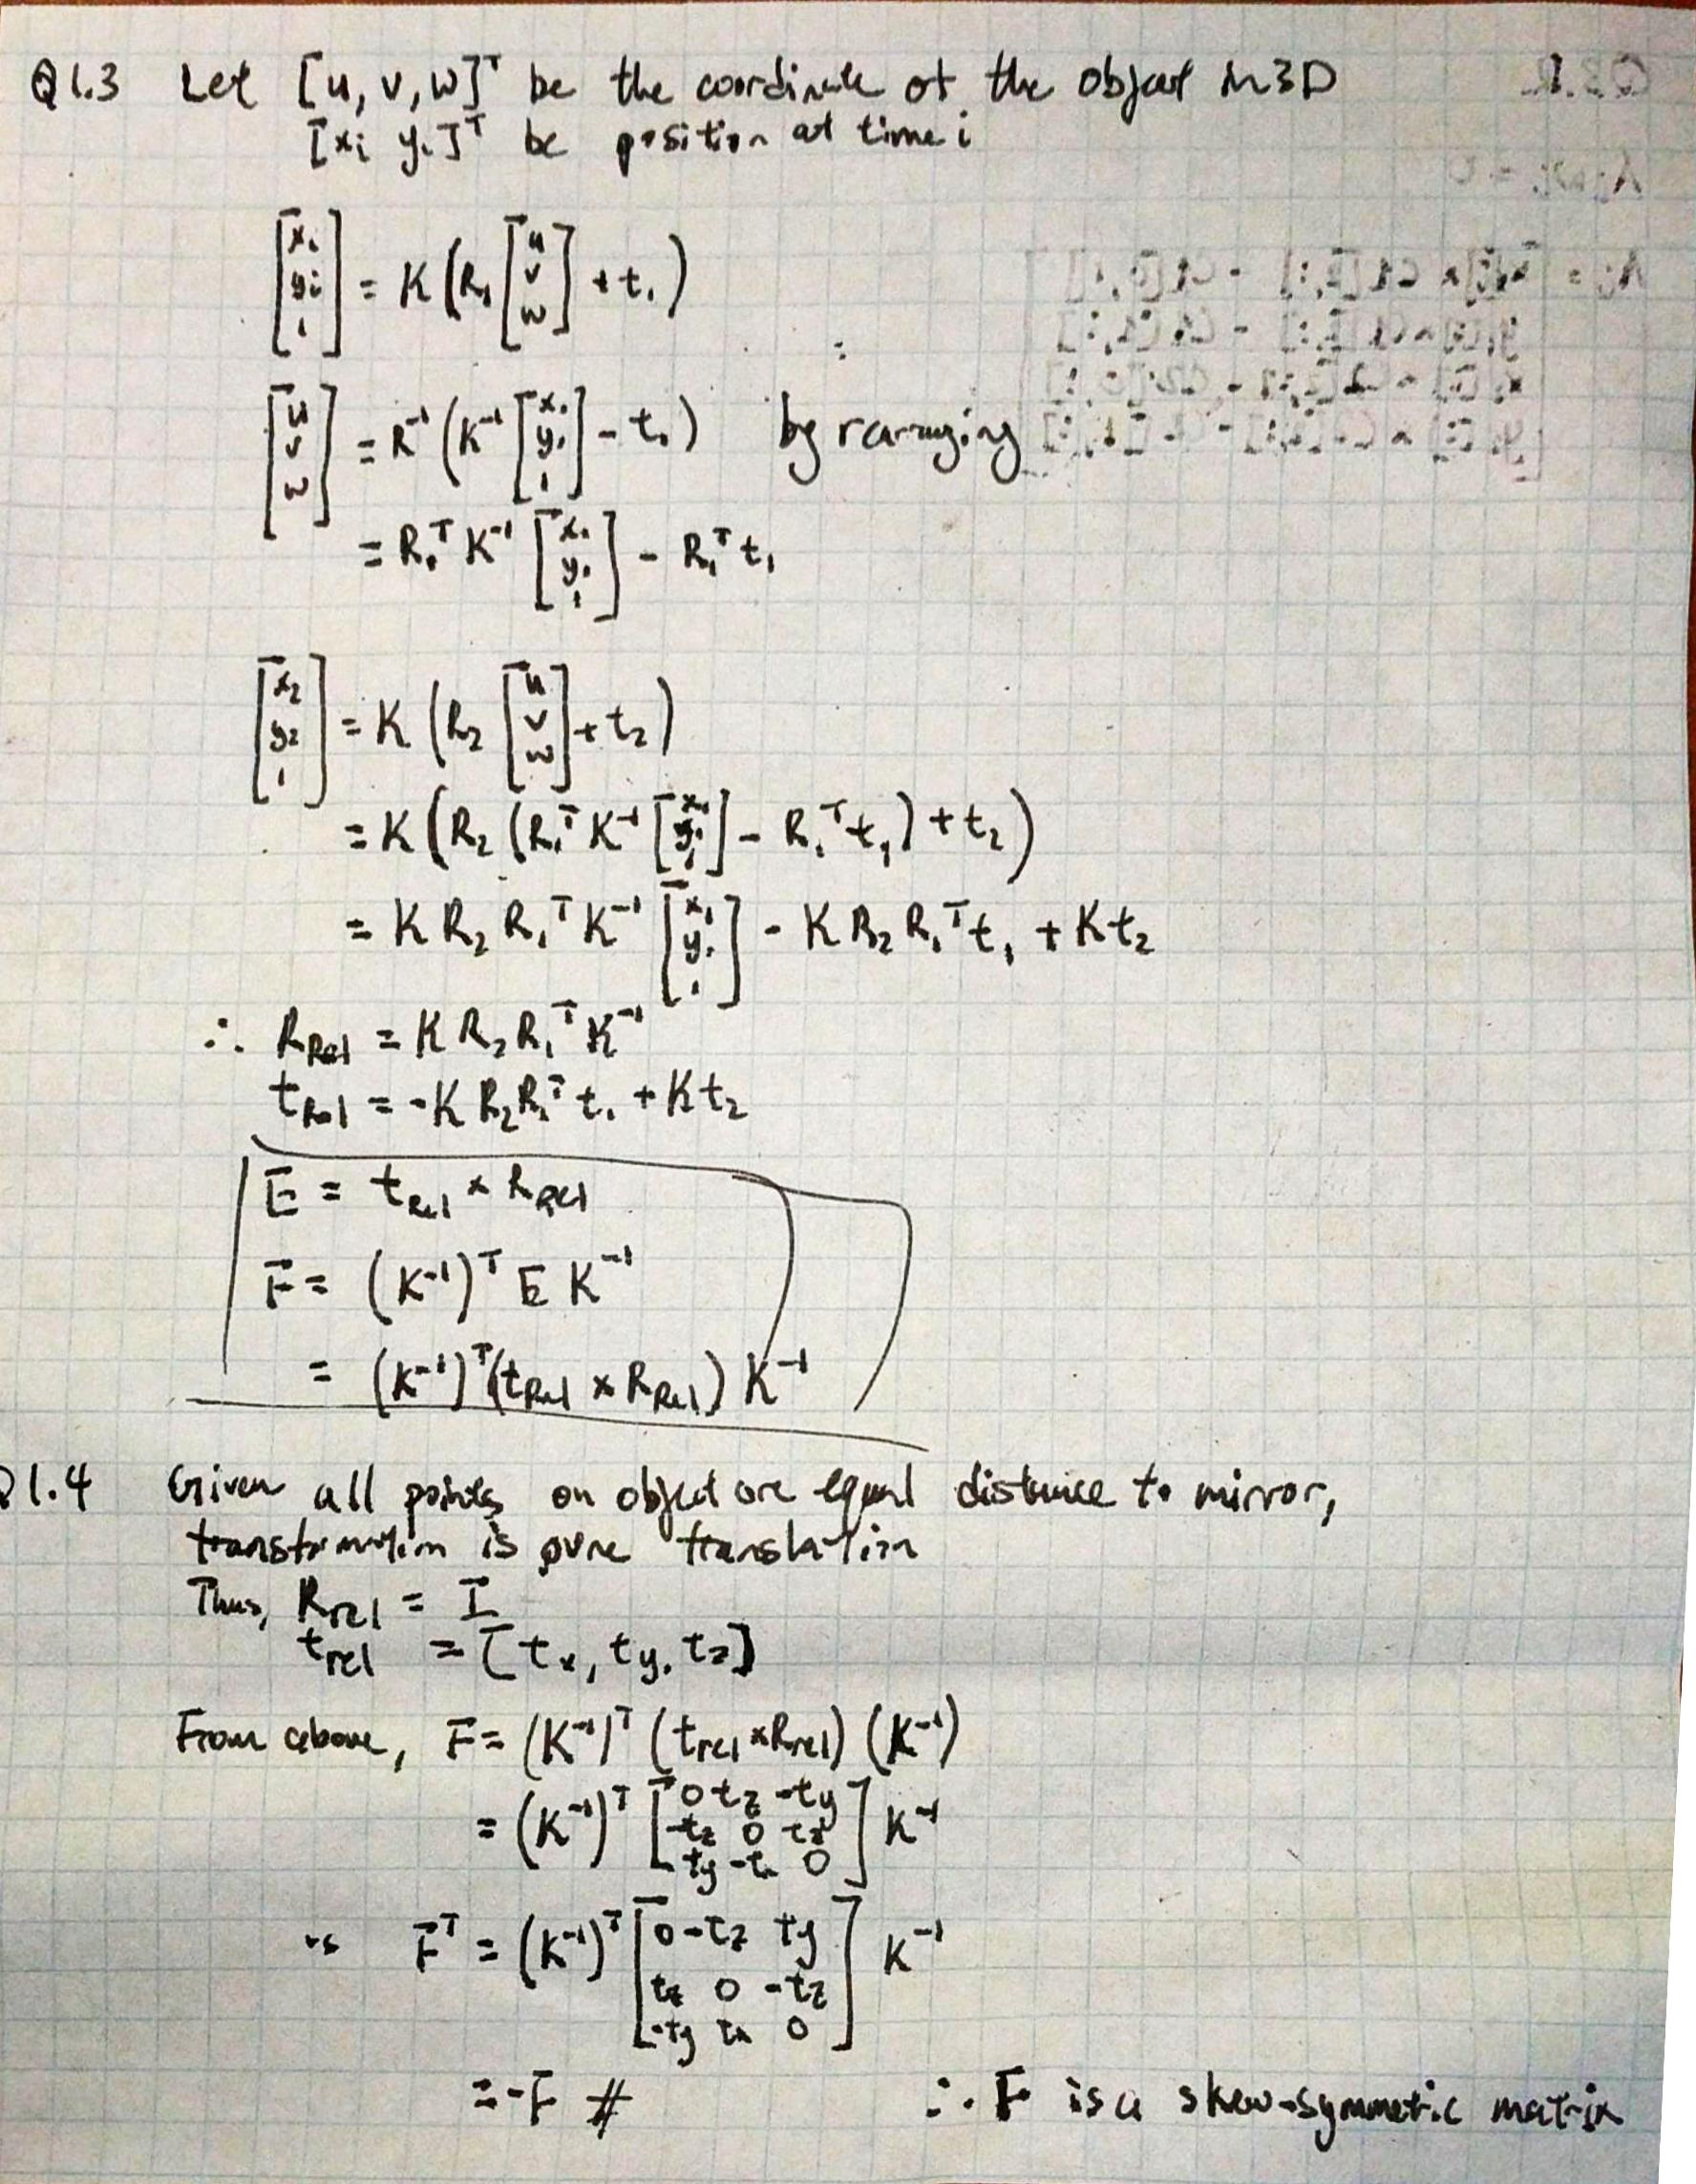 Q1.3 Let [u, v, w]^T be the coordinate of the object in 3D
[xi yi]^T be position at time i
[xi yi 1] = K (R1 [u v w] + t1)
[u v w] = R^-1 (K^-1 [x1 y1 1] - t1) by rearranging
= R1^T K^-1 [x1 y1 1] - R1^T t1
[x2 y2 1] = K (R2 [u v w] + t2)
= K (R2 (R1^T K^-1 [x1 y1 1] - R1^T t1) + t2)
= K R2 R1^T K^-1 [x1 y1 1] - K R2 R1^T t1 + K t2
∴ RRel = K R2 R1^T K^-1
tRel = -K R2 R1^T t1 + K t2
E = tRel × RRel
F = (K^-1)^T E K^-1
= (K^-1)^T (tRel × RRel) K^-1
Q1.4 Given all points on object are equal distance to mirror,
transformation is pure translation
Thus, Rrel = I
trel = [tx, ty, tz]
From above, F = (K^-1)^T (trel × Rrel) (K^-1)
= (K^-1)^T [0 tz -ty
-tz 0 tx
ty -tx 0] K^-1
F^T = (K^-1)^T [0 -tz ty
tz 0 -tz
-ty tx 0] K^-1
= -F # ∴ F is a skew-symmetric matrix